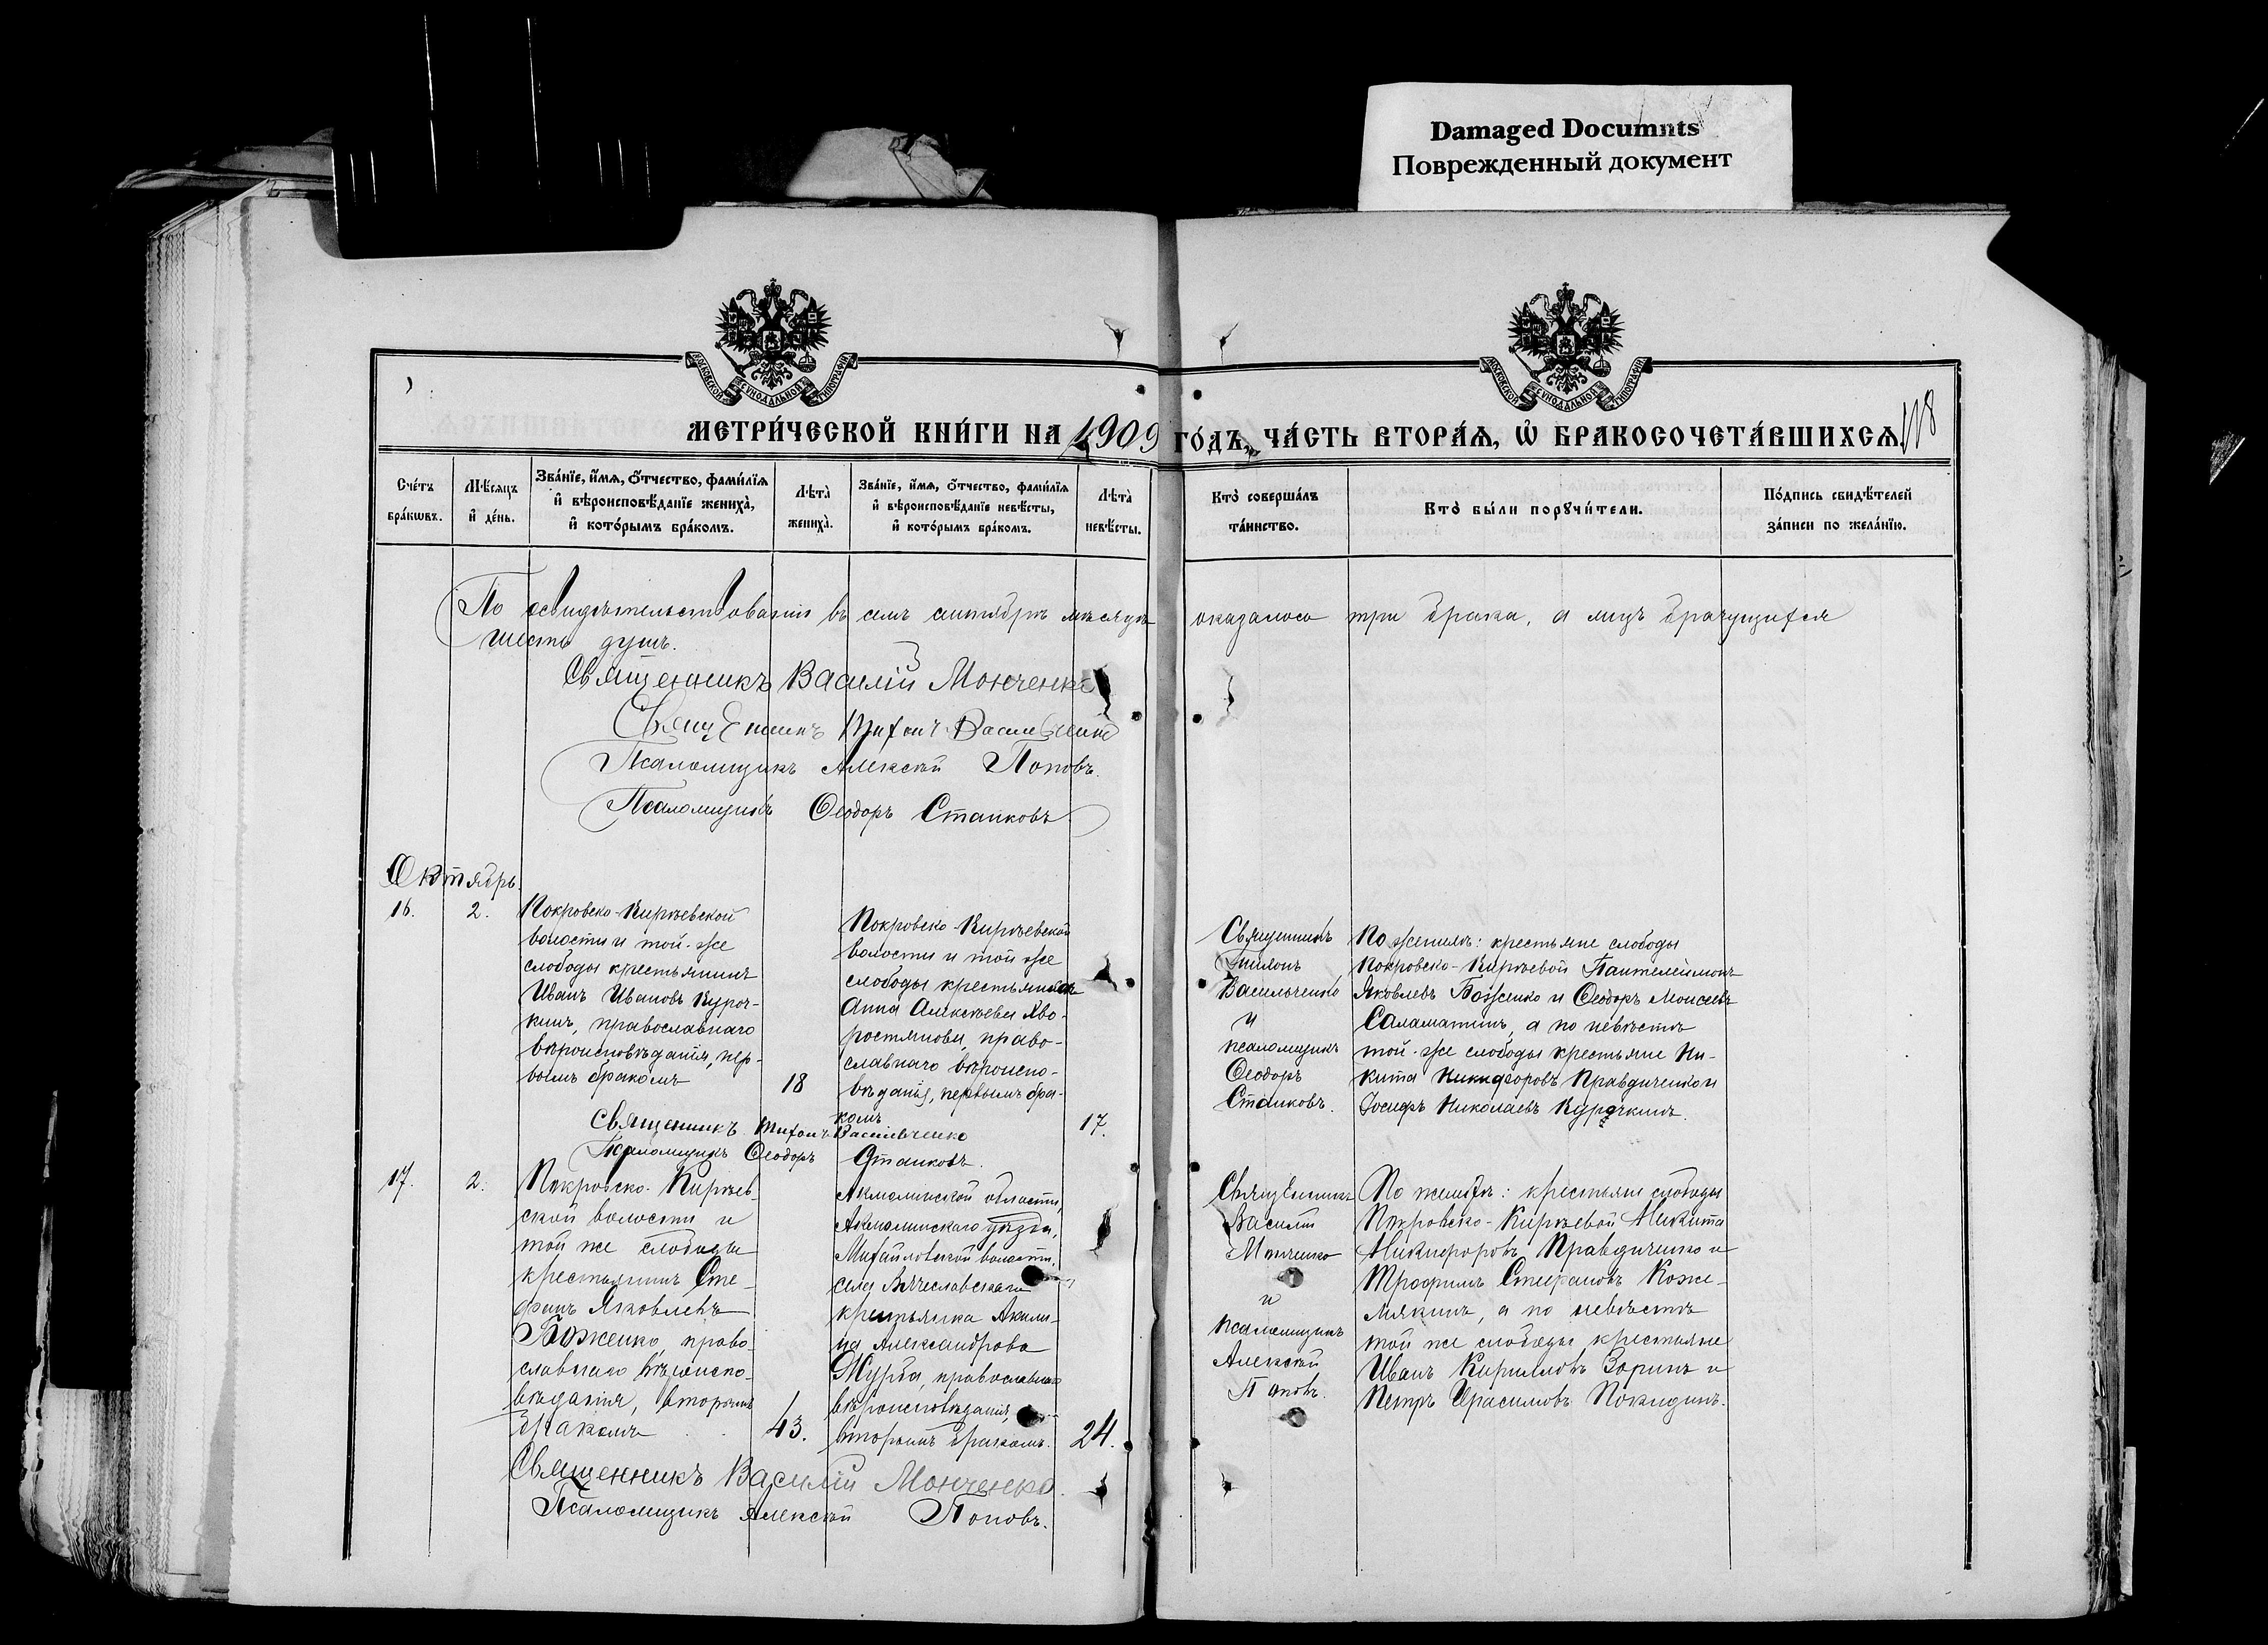 Damaged Documnts
Поврежденный документ
МОСКОВСКОЙ СѴНОДАЛЬНОЙ ТИПОГРАФІИ
МОСКОВСКОЙ СѴНОДАЛЬНОЙ ТИПОГРАФІИ
МЕТРИ́ЧЕСКОЙ КНИ́ГИ НА 1909 ГО́ДЪ, ЧА́СТЬ ВТОРА́Ѧ, Ѡ҆ БРАКОСОЧЕТА́ВШИХСѦ.
118
Сче́тъ бра́кѡвъ.
Мѣ́сяцъ и҆ де́нь.
Зва́нїе, и҆́мѧ, ѻ҆́тчество, фами́лїѧ и҆ вѣроисповѣ́данїе жениха̀, и҆ кото́рымъ бра́комъ.
Лѣта̀ жениха̀.
Зва́нїе, и҆́мѧ, ѻ҆́тчество, фами́лїѧ и҆ вѣроисповѣ́данїе невѣ́сты, и҆ кото́рымъ бра́комъ.
Лѣта̀ невѣ́сты.
Кто̀ соверша́лъ та́инство.
Кто̀ бы́ли порꙋчи́тели.
По́дпись свидѣ́телей за́писи по жела́нїю.
По освидѣтельствованіи въ семъ сентябрѣ мѣсяцѣ оказалось три брака, а лицъ брачущихся
шесть душъ.
Священникъ Василій Монченко
Священникъ Тихонъ Васильченко
Псаломщикъ Алексѣй Поповъ.
Псаломщикъ Ѳеодоръ Станковъ
Октябрь.
16.
2.
Покровско-Кирѣевской
волости и той-же
слободы крестьянинъ
Иванъ Ивановъ Куроч-
кинъ, православнаго
вѣроисповѣданія, пер-
вымъ бракомъ
18
Покровско-Кирѣевской
волости и той же
слободы крестьянка
Анна Алексѣева Хво-
ростянова, право-
славнаго вѣроиспо-
вѣданія, первымъ бра-
комъ
17.
Священникъ
Тихонъ
Васильченко
и
псаломщикъ
Ѳеодоръ
Станковъ.
По женихѣ: крестьяне слободы
Покровско-Кирѣевой Пантелеймонъ
Яковлевъ Боженко и Ѳеодоръ Моисеевъ
Саламатинъ, а по невѣстѣ
той-же слободы крестьяне Ни-
кита Никифоровъ Правдиченко и
Іосифъ Николаевъ Курочкинъ.
Священникъ Тихонъ Васильченко
Псаломщикъ Ѳеодоръ Станковъ.
17.
2.
Покровско-Кирѣев-
ской волости и
той же слободы
крестьянинъ Сте-
фанъ Яковлевъ
Боженко, право-
славнаго вѣроиспо-
вѣданія, вторымъ
бракомъ
43.
Акмолинской области,
Акмолинскаго уѣзда,
Михайловской волости,
села Вячеславскаго
крестьянка Акили-
на Александрова
Журба, православнаго
вѣроисповѣданія,
вторымъ бракомъ.
24.
Священникъ
Василій
Монченко
и
псаломщикъ
Алексѣй
Поповъ.
По женихѣ: крестьяне слободы
Покровско-Кирѣевой Никита
Никифоровъ Правдиченко и
Трофимъ Стефановъ Коже-
мякинъ, а по невѣстѣ
той же слободы крестьяне
Иванъ Кирилловъ Зоринъ и
Петръ Герасимовъ Покидинъ.
Священникъ Василій Монченко.
Псаломщикъ Алексѣй Поповъ.